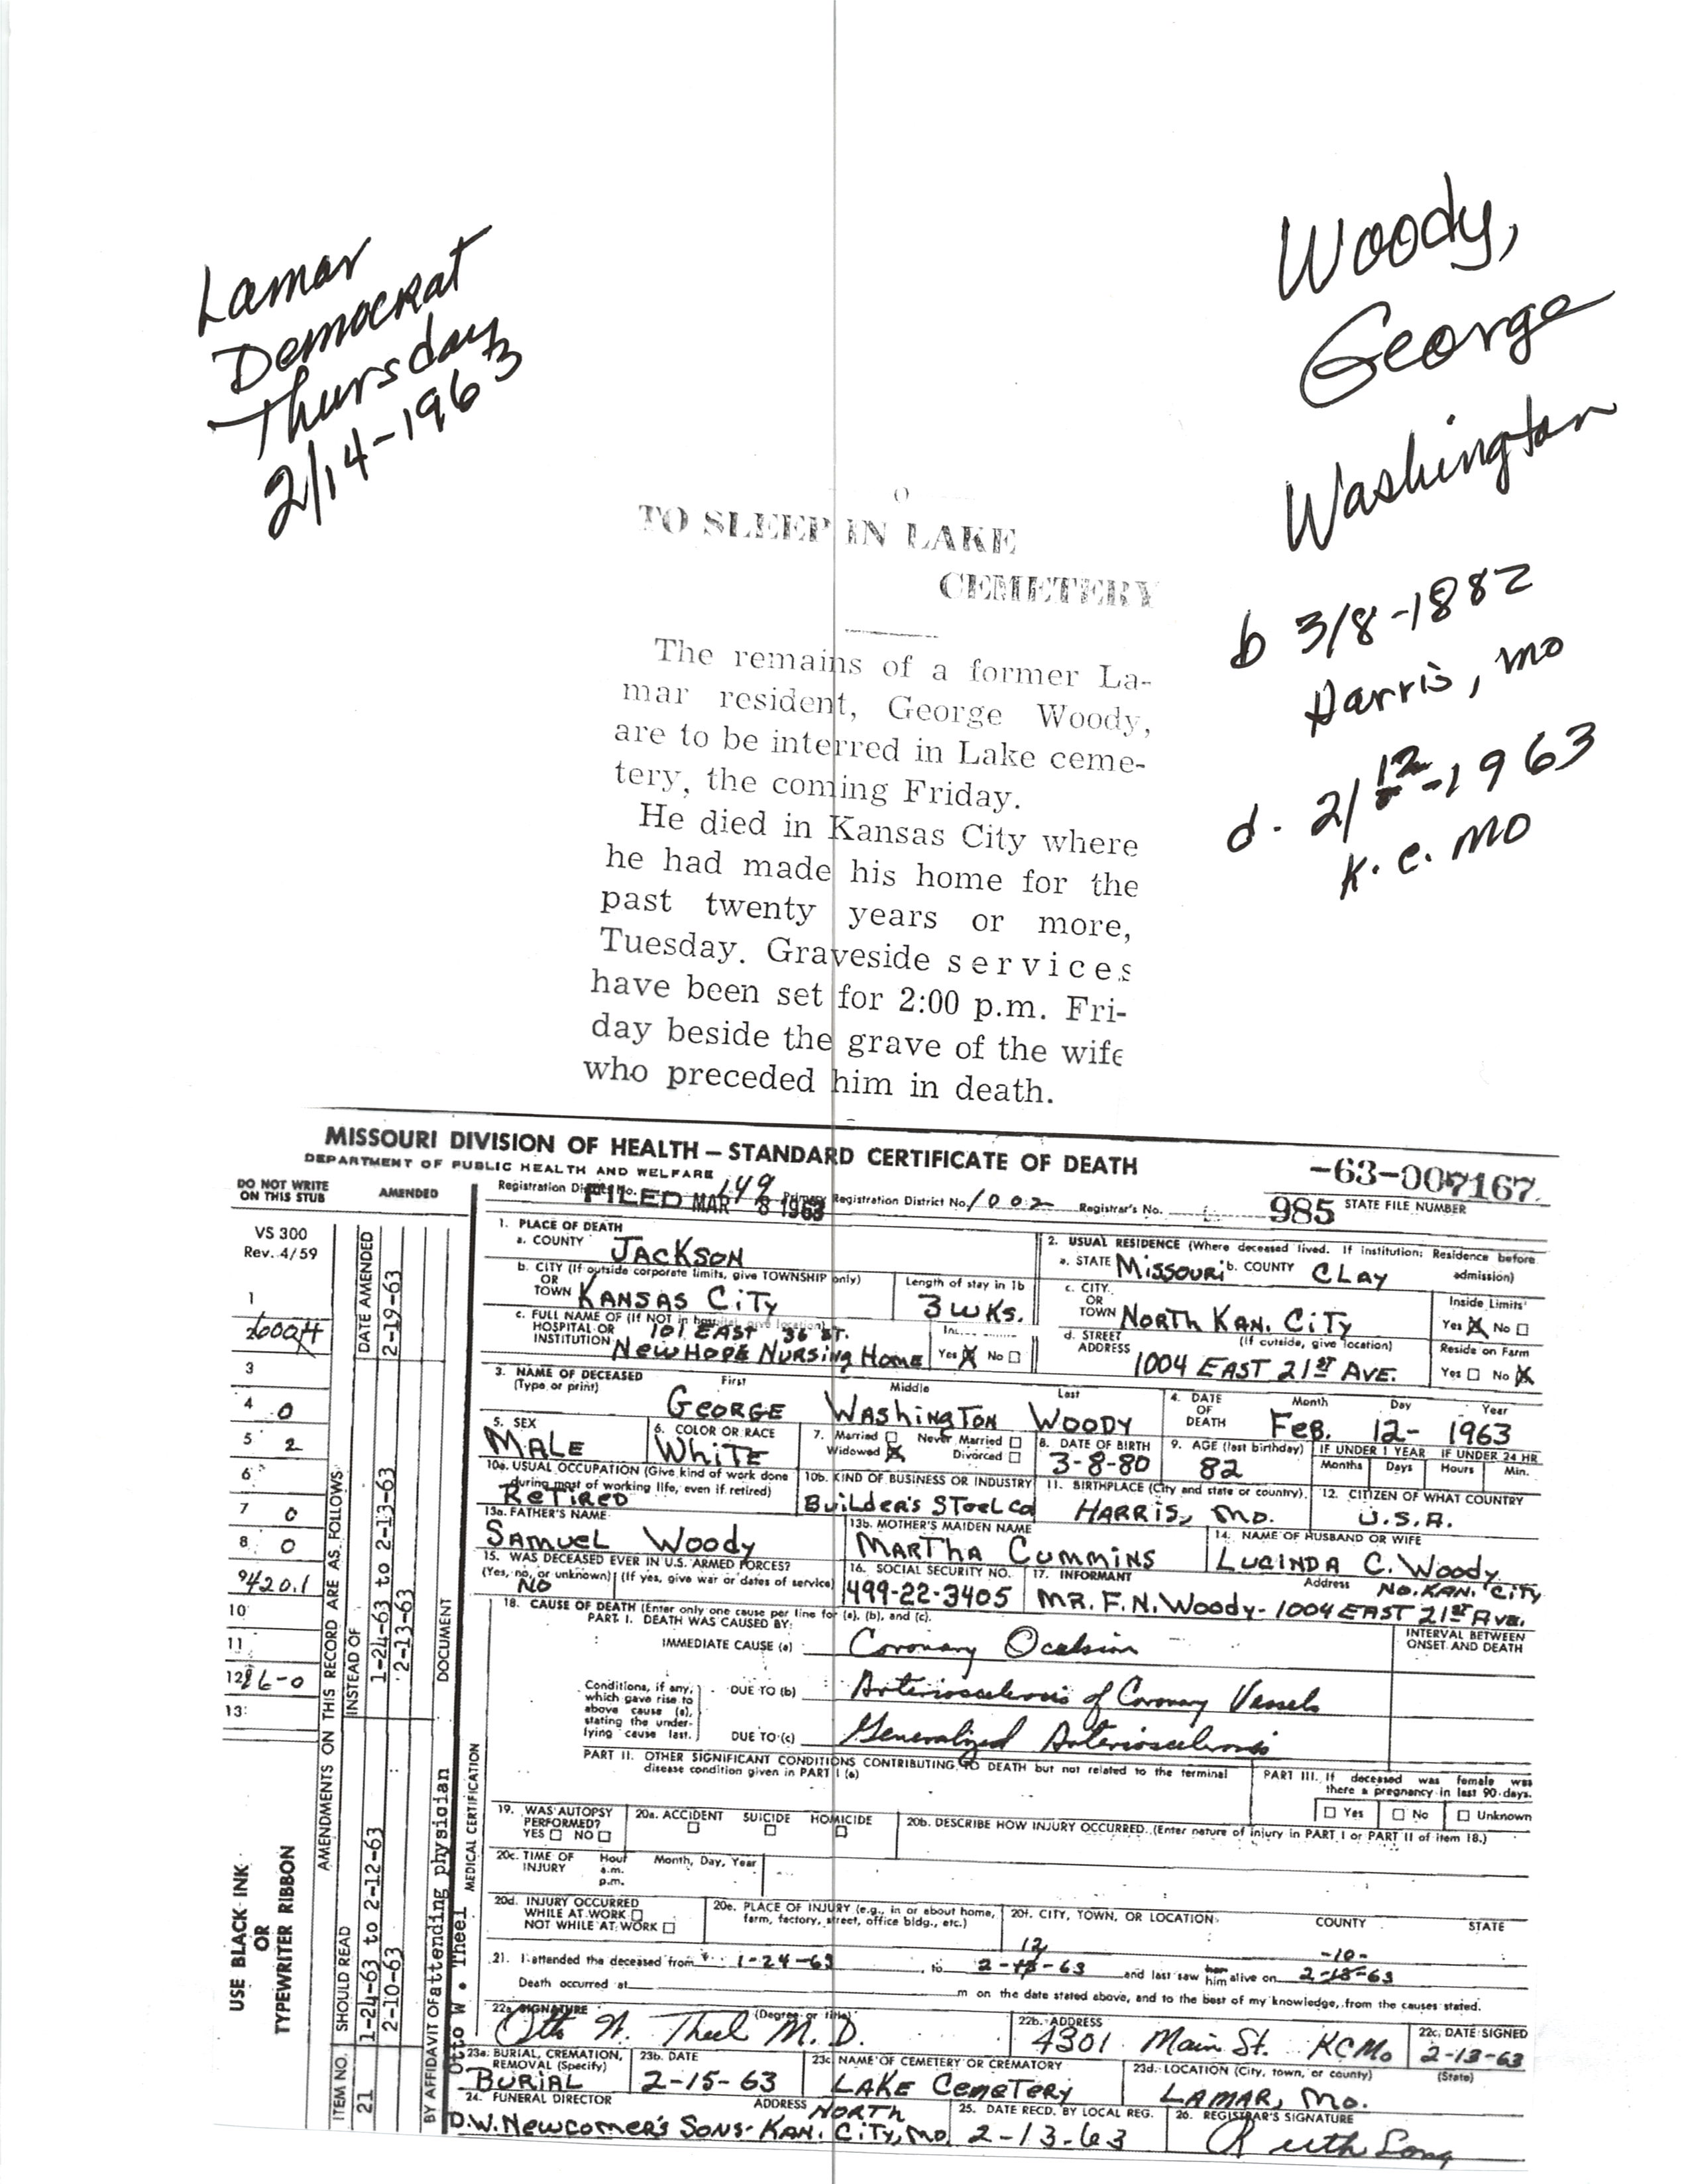 Lamar
Democrat
Thursday
2/14-1963
Woody,
George
Washington
b 3/8-1882
Harris, Mo
d. 2/12-1963
K.C. MO
TO SLEEP IN LAKE
CEMETERY
The remains of a former La-
mar resident, George Woody,
are to be interred in Lake ceme-
tery, the coming Friday.
He died in Kansas City where
he had made his home for the
past twenty years or more,
Tuesday. Graveside services
have been set for 2:00 p.m. Fri-
day beside the grave of the wife
who preceded him in death.
MISSOURI DIVISION OF HEALTH — STANDARD CERTIFICATE OF DEATH
DEPARTMENT OF PUBLIC HEALTH AND WELFARE
-63-007167
STATE FILE NUMBER
DO NOT WRITE
ON THIS STUB
AMENDED
Registration District No. 149 Primary Registration District No. 1002 Registrar's No. 985
FILED MAR 8 1963
VS 300
Rev. 4/59
1
3
4 0
5 2
6
7 0
8 0
9420.1
10
11
13
USE BLACK INK
OR
TYPEWRITER RIBBON
AMENDMENTS ON THIS RECORD ARE AS FOLLOWS
DATE AMENDED
2-19-63
INSTEAD OF
1-24-63 to 2-13-63
2-13-63
SHOULD READ
1-24-63 to 2-12-63
2-10-63
ITEM NO.
21
DOCUMENT
BY AFFIDAVIT OF attending physician
Otto W. Theel
MEDICAL CERTIFICATION
1. PLACE OF DEATH
a. COUNTY JACKSON
b. CITY (If outside corporate limits, give TOWNSHIP only)
OR
TOWN KANSAS CITY
Length of stay in 1b
3 WKS.
c. FULL NAME OF (If NOT in hospital, give location)
HOSPITAL OR
INSTITUTION
101 EAST 36 ST.
NEW HOPE NURSING HOME
Yes No
2. USUAL RESIDENCE (Where deceased lived. If institution: Residence before
admission)
a. STATE MISSOURI b. COUNTY CLAY
c. CITY
OR
TOWN NORTH KAN. CITY
Inside Limits
Yes No
d. STREET
ADDRESS
(If outside, give location)
1004 EAST 21ST AVE.
Reside on Farm
Yes No
3. NAME OF DECEASED
(Type or print)
First Middle Last
GEORGE WASHINGTON WOODY
4. DATE
OF
DEATH
Month Day Year
FEB. 12- 1963
5. SEX
MALE
6. COLOR OR RACE
WHITE
7. Married Never Married
Widowed Divorced
8. DATE OF BIRTH
3-8-80
9. AGE (last birthday)
82
IF UNDER 1 YEAR
Months Days
IF UNDER 24 HR
Hours Min.
10a. USUAL OCCUPATION (Give kind of work done
during most of working life, even if retired)
RETIRED
10b. KIND OF BUSINESS OR INDUSTRY
BUILDER'S STEEL CO
11. BIRTHPLACE (City and state or country)
HARRIS, MO.
12. CITIZEN OF WHAT COUNTRY
U.S.A.
13a. FATHER'S NAME
SAMUEL WOODY
13b. MOTHER'S MAIDEN NAME
MARTHA CUMMINS
14. NAME OF HUSBAND OR WIFE
LUCINDA C. WOODY
15. WAS DECEASED EVER IN U.S. ARMED FORCES?
(Yes, no, or unknown) (If yes, give war or dates of service)
NO
16. SOCIAL SECURITY NO.
499-22-3405
17. INFORMANT
Address
NO. KAN. CITY
MR. F. N. WOODY - 1004 EAST 21ST AVE.
18. CAUSE OF DEATH (Enter only one cause per line for (a), (b), and (c).
PART I. DEATH WAS CAUSED BY:
INTERVAL BETWEEN
ONSET AND DEATH
IMMEDIATE CAUSE (a) Coronary Occlusion
Conditions, if any,
which gave rise to
above cause (a),
stating the under-
lying cause last.
DUE TO (b) Arteriosclerosis of Coronary Vessels
DUE TO (c) Generalized Arteriosclerosis
PART II. OTHER SIGNIFICANT CONDITIONS CONTRIBUTING TO DEATH but not related to the terminal
disease condition given in PART I (a)
PART III. If deceased was female was
there a pregnancy in last 90 days.
Yes No Unknown
19. WAS AUTOPSY
PERFORMED?
YES NO
20a. ACCIDENT SUICIDE HOMICIDE
20b. DESCRIBE HOW INJURY OCCURRED. (Enter nature of injury in PART I or PART II of item 18.)
20c. TIME OF
INJURY
Hour
a.m.
p.m.
Month, Day, Year
20d. INJURY OCCURRED
WHILE AT WORK
NOT WHILE AT WORK
20e. PLACE OF INJURY (e.g., in or about home,
farm, factory, street, office bldg., etc.)
20f. CITY, TOWN, OR LOCATION COUNTY STATE
12 -10-
21. I attended the deceased from 1-24-63, to 2-13-63 and last saw her him alive on 2-13-63
Death occurred at m on the date stated above, and to the best of my knowledge, from the causes stated.
22a. SIGNATURE (Degree or title)
Otto W. Theel M.D.
22b. ADDRESS
4301 Main St. KCMo
22c. DATE SIGNED
2-13-63
23a. BURIAL, CREMATION,
REMOVAL (Specify)
BURIAL
23b. DATE
2-15-63
23c. NAME OF CEMETERY OR CREMATORY
LAKE CEMETERY
23d. LOCATION (City, town, or county) (State)
LAMAR, MO.
24. FUNERAL DIRECTOR ADDRESS
D.W. NEWCOMER'S SONS - NORTH KAN. CITY, MO
25. DATE RECD. BY LOCAL REG.
2-13-63
26. REGISTRAR'S SIGNATURE
Ruth Long